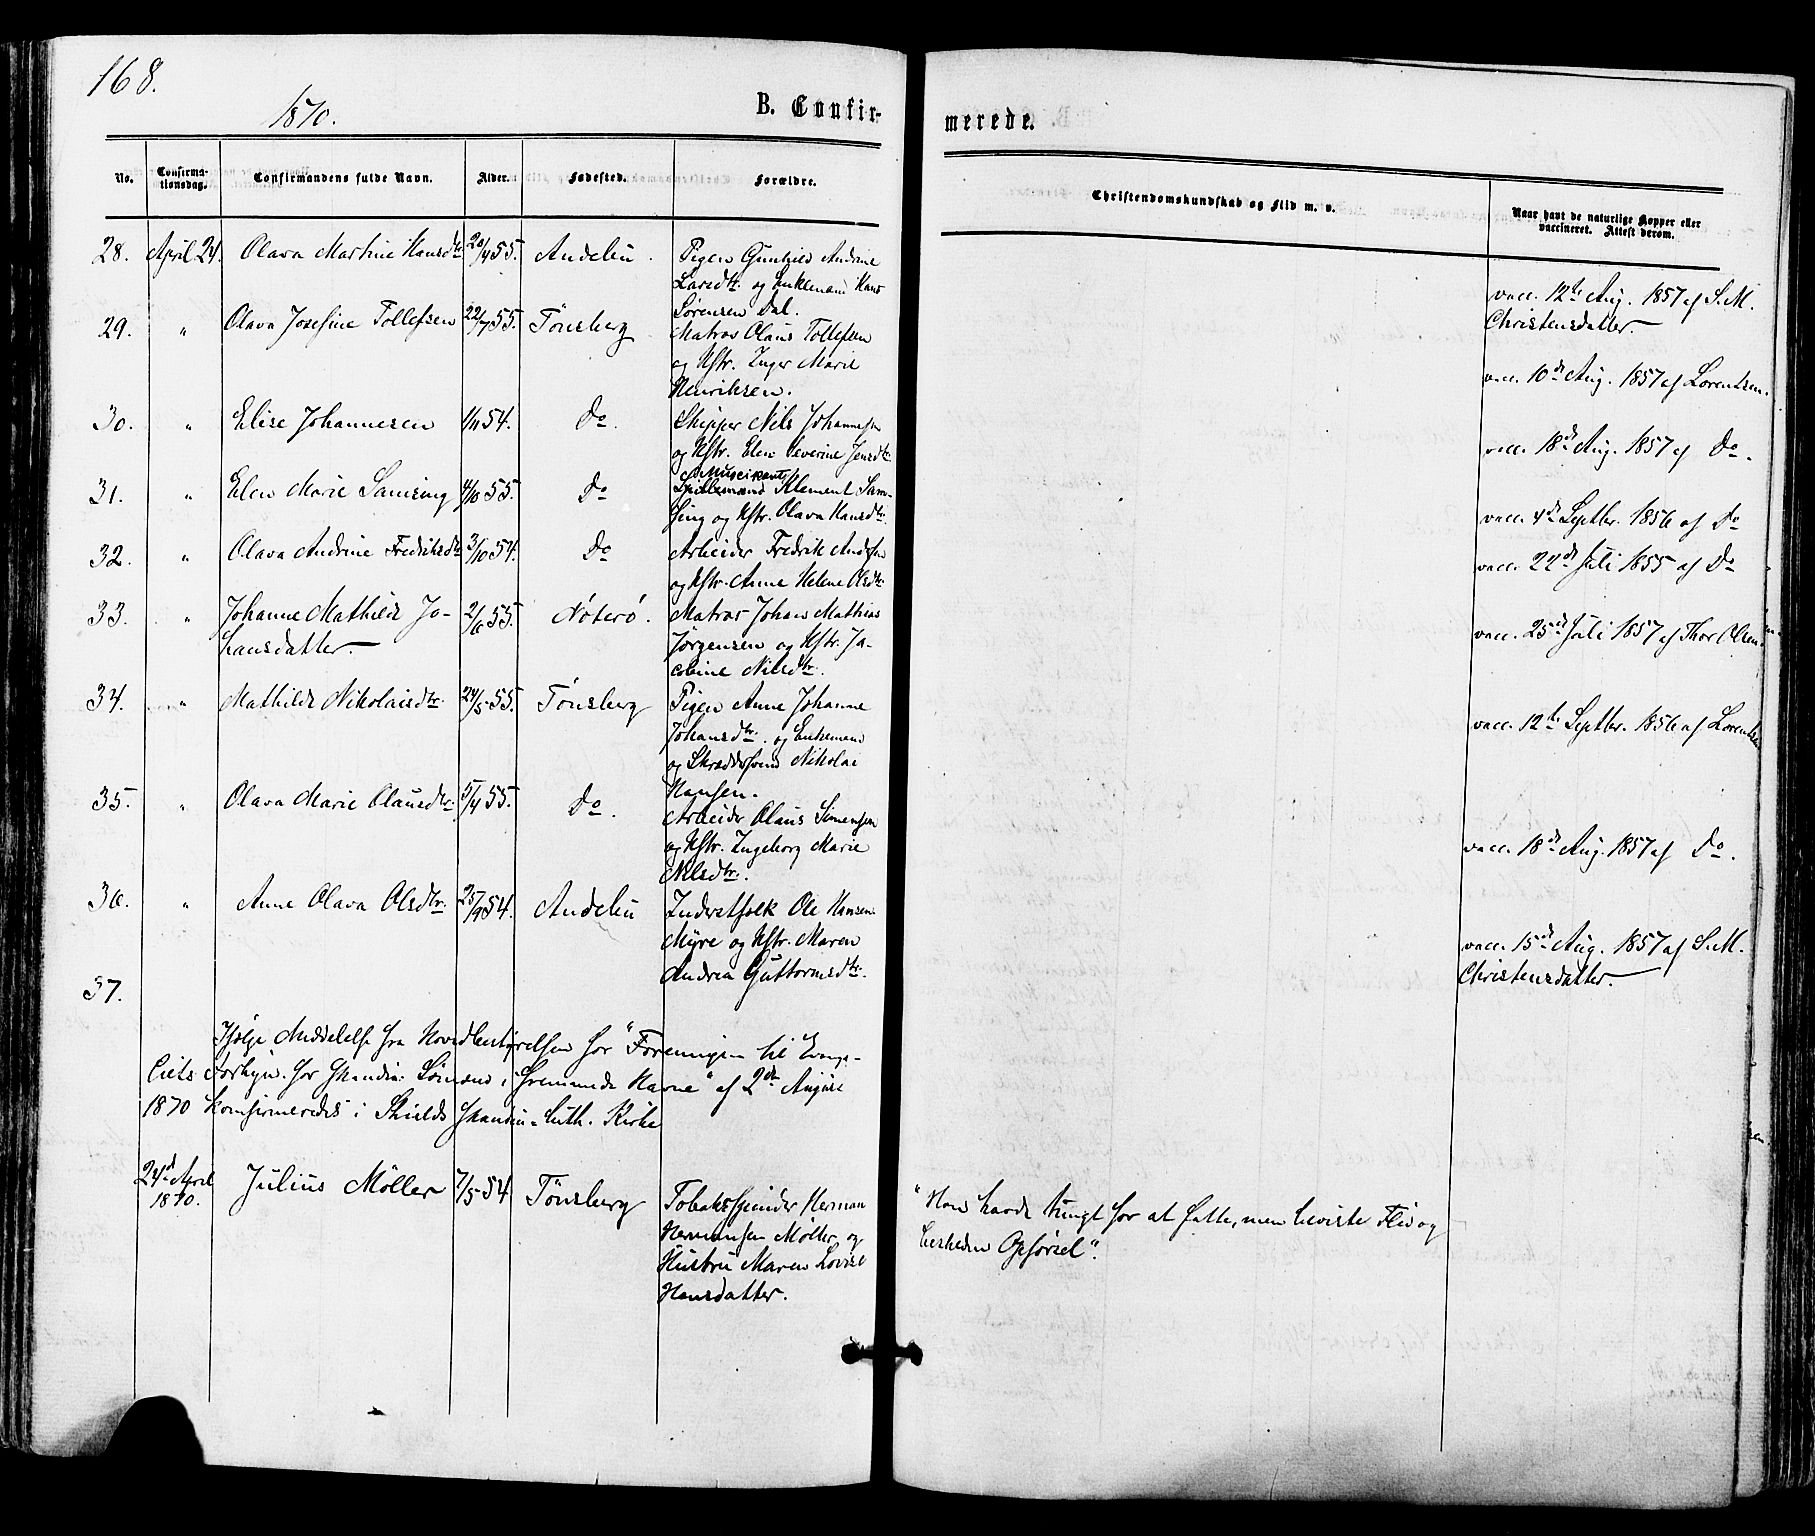 168.
1870.
B. Confir-
merede.
No.
Confirma-
tionsdag.
Confirmandens fulde Navn.
Alder.
Fødested.
Forældre.
Christendomskundskab og Flid m. v.
Naar havt de naturlige Kopper eller
vaccineret. Attest derom.
28. April 24. Olava Martine Hansdtr. 20/4 55. Andebu. Pigen Gunhild Andrine
Larsdtr. og Enkemand Hans
Sørensen Dal.
vacc. 12te Aug. 1857 af S. M.
Christensdatter.
29. " Olava Josefine Tollefsen 22/7 55. Tönsberg Matros Olaus Tollefsen
og Hstr. Inger Marie
Henriksen.
vacc. 10de Aug. 1857 af Lorentzen.
30. " Elise Johannesen 1/11 54. Do. Skipper Nils Johannesen
og Hstr. Elen Severine Jensdtr.
vacc. 18de Aug. 1857 af Do.
31. " Elen Marie Samsing 4/10 55. Do Musicikant
Spillemand Klement Sam-
sing og Hstr. Olava Hansdtr.
vacc. 4de Septbr. 1856 af Do
32. " Olava Andrine Fredriksdtr 3/10 54. Do Arbeider Fredrik Andersen
og Hstr. Anne Helene Olsdtr
vacc. 22de Juli 1855 af Do
33. " Johanne Mathilde Jo-
hansdatter. 2/6 55. Nöterö. Matros Johan Mathias
Jörgensen og Hstr. Ja-
cobine Nilsdtr.
vacc. 25de Juli 1857 af Thor Olsen
34. " Mathilde Nikolaisdtr. 24/5 55. Tönsberg Pigen Anne Johanne
Johansdtr. og Enkemand
og Skrædersvend Nikolai
Hansen.
vacc. 12te Septbr. 1856 af Lorentzen
35. " Olava Marie Olausdtr. 5/4 55. Do. Arbeider Olaus Simensen
og Hstr. Ingeborg Marie
Nilsdtr.
vacc. 18de Aug. 1857 af Do.
36. " Anne Olava Olsdtr. 25/9 54. Andebu Inderstfolk Ole Hansen
Myre og Hstr. Maren
Andrea Guttormsdtr.
vacc. 15de Aug. 1857 af S. M.
Christensdatter.
37.
Ifølge Meddelelse fra Hovedbestyrelsen for "Foreningen til Evange-
liets Forkyn. for skandin. Sömænd i fremmede Havne" af 2den August
1870 konfirmeredes i Shields skandin. luth. Kirke
24de April
1870. Julius Möller 7/5 54 Tönsberg Tobaksspinder Herman
Hermansen Möller og
Hustru Maren Lovise
Hansdatter.
"Han havde tungt for at fatte, men beviste Flid og
beskeden Opførsel".